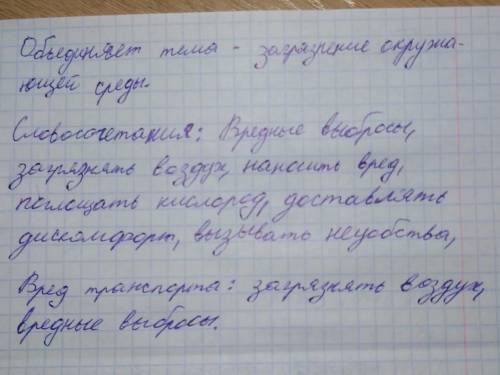 Объединяет тема - загрязнение окружа-
ющей среды.
Словосочетания: Вредные выбросы,
загрязнять воздух, наносить вред,
поглощать кислород, доставлять
дискомфорт, вызывать неудобства,
Вред транспорта: загрязнять воздух,
вредные выбросы.